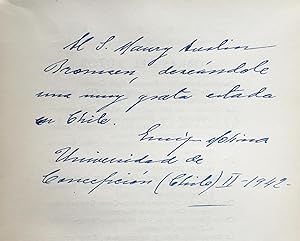 Al S. Maury Austin
Bromsen, deseándole
una muy grata estada
en Chile.
Enriq Molina
Universidad de
Concepción (Chile) II-1942-